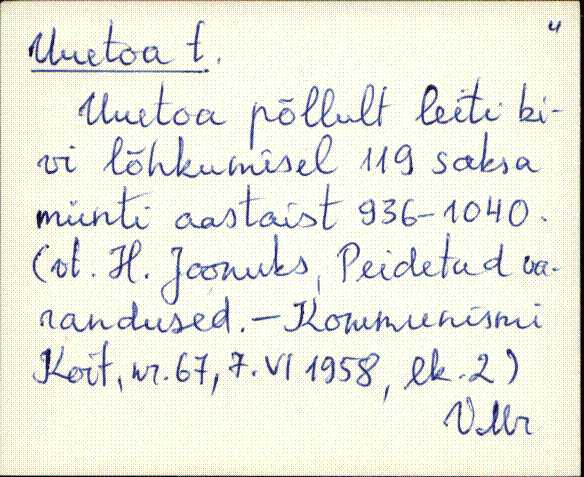 4
Uuetoa t.
Uuetoa põllult leiti ki-
vi lõhkumisel 119 saksa
münti aastaist 936-1040.
(vt. H. Joonuks, Peidetud va-
randused. - Kommunismi
Koit, nr. 67, 7. VI 1958, lk. 2)